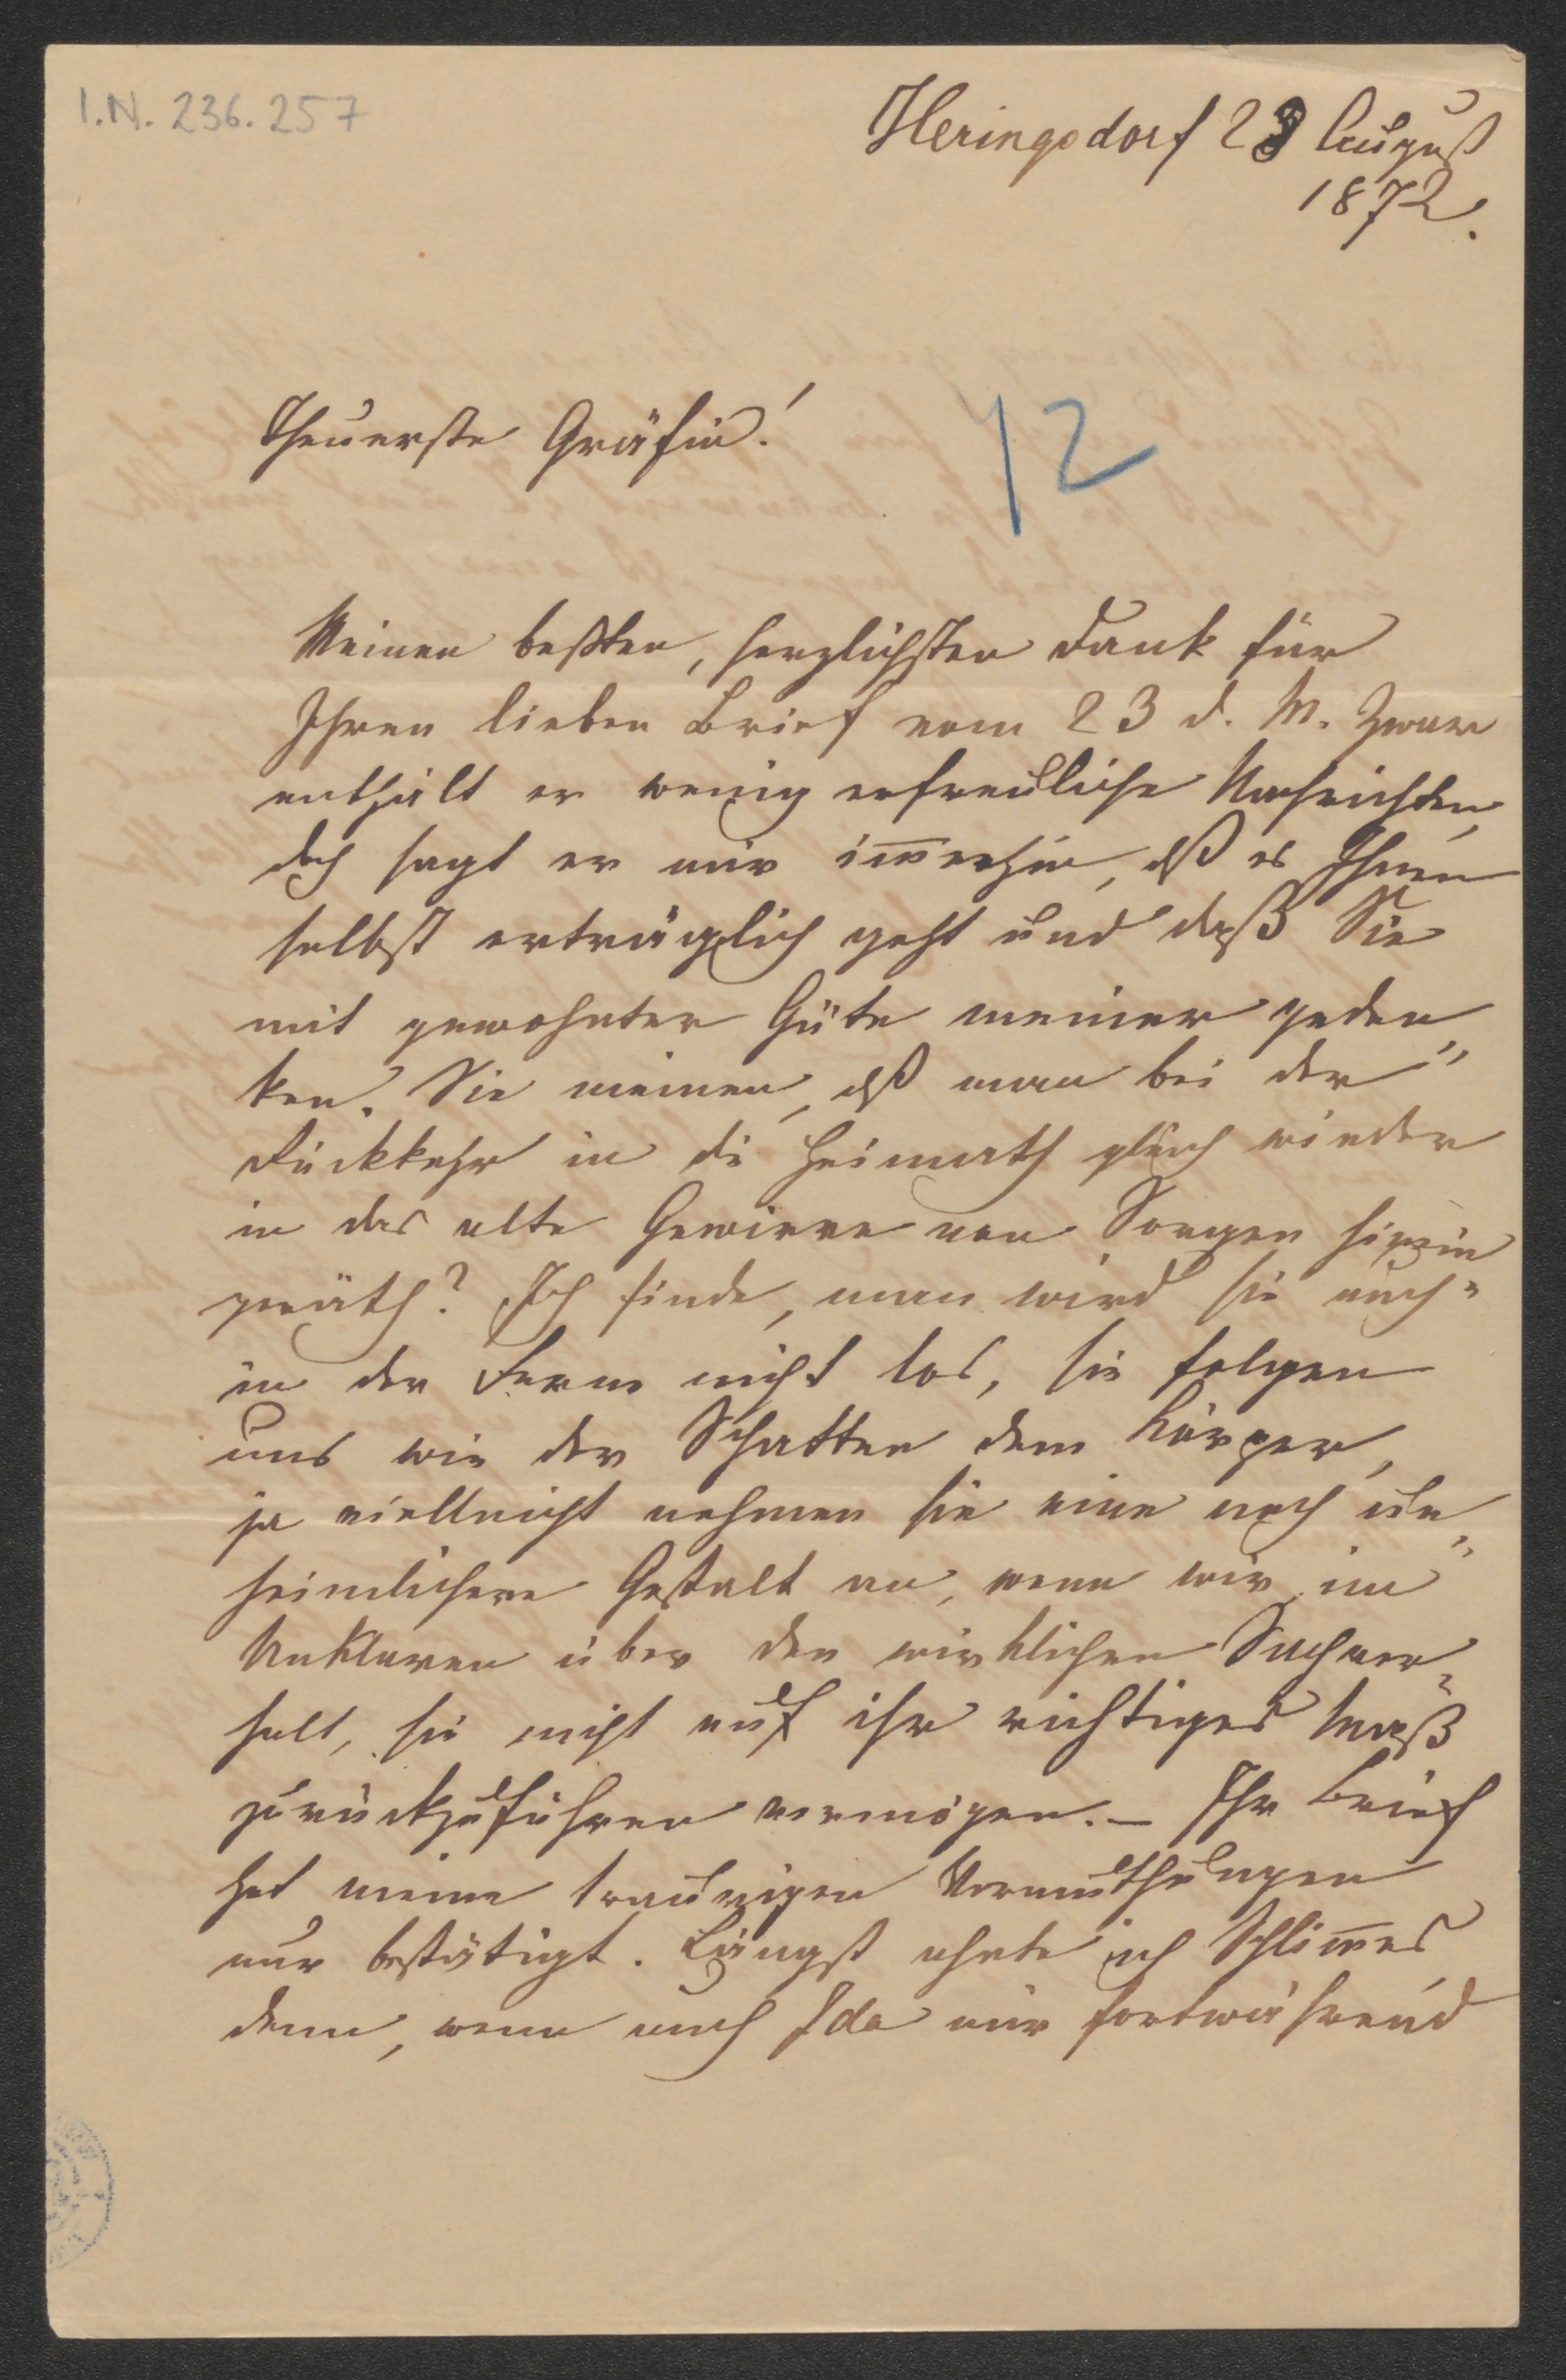 I.N. 236.257
Heringsdorf 28 August
1872.
Theuerste Gräfin!
42
Meinen besten, herzlichsten Dank für
Ihren lieben Brief vom 23 d. M. Zwar
enthält er wenig erfreuliche Nachrichten,
doch sagt er mir im̅erhin, dß es Ihnen
selbst erträglich geht und daß Sie
mit gewohnter Güte meiner geden„
ken. Sie meinen, dß man bei der
Rückkehr in die Heimath gleich wieder
in das alte Gewirre von Sorgen hinein
geräth? Ich finde, man wird sie auch
in der Ferne nicht los, sie folgen
uns wie der Schatten dem Körper,
ja vielleicht nehmen sie eine noch un„
heimlichere Gestalt an, wenn wir im
Unklaren über den wirklichen Sachver„
halt, sie nicht auf ihr richtiges Maß
zurückzuführen vermögen. – Ihr Brief
hat meine traurigen Vermuthungen
nur bestätigt. Längst ahnte ich Schlim̅es
denn, wenn auch Ida mir fortwährend